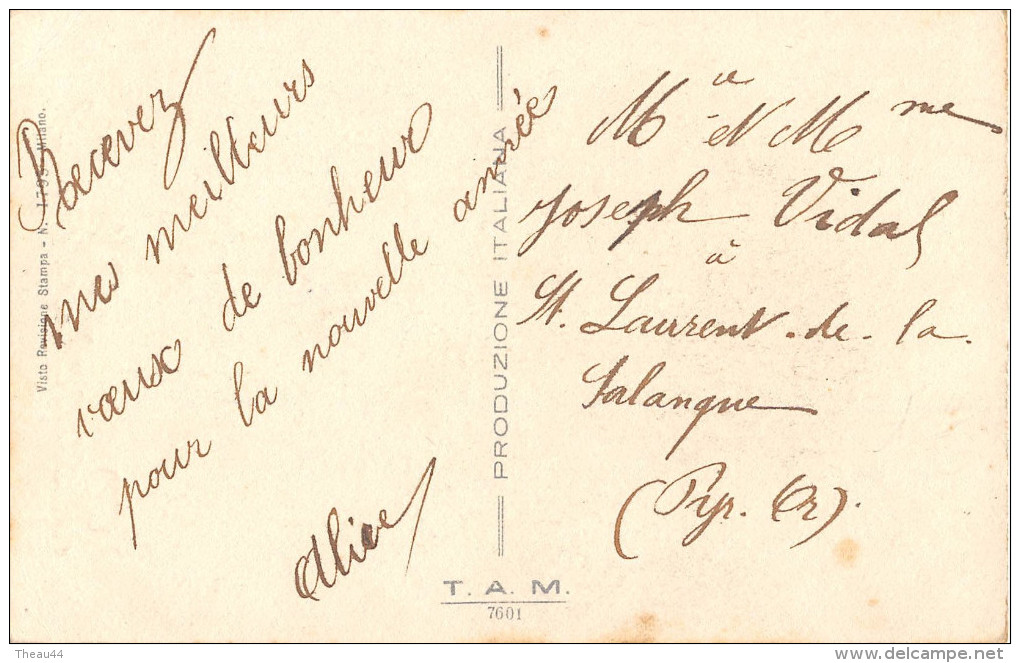 Recevez
mes meilleurs
vœux de bonheur
pour la nouvelle année
Alice
Mr et Mme
Joseph Vidal
à
St. Laurent-de-la
Salanque
(Pyr. Or).
Visto Revisione Stampa - N. Milano.
PRODUZIONE ITALIANA
T. A. M.
7601
Theau44
delcampe.net